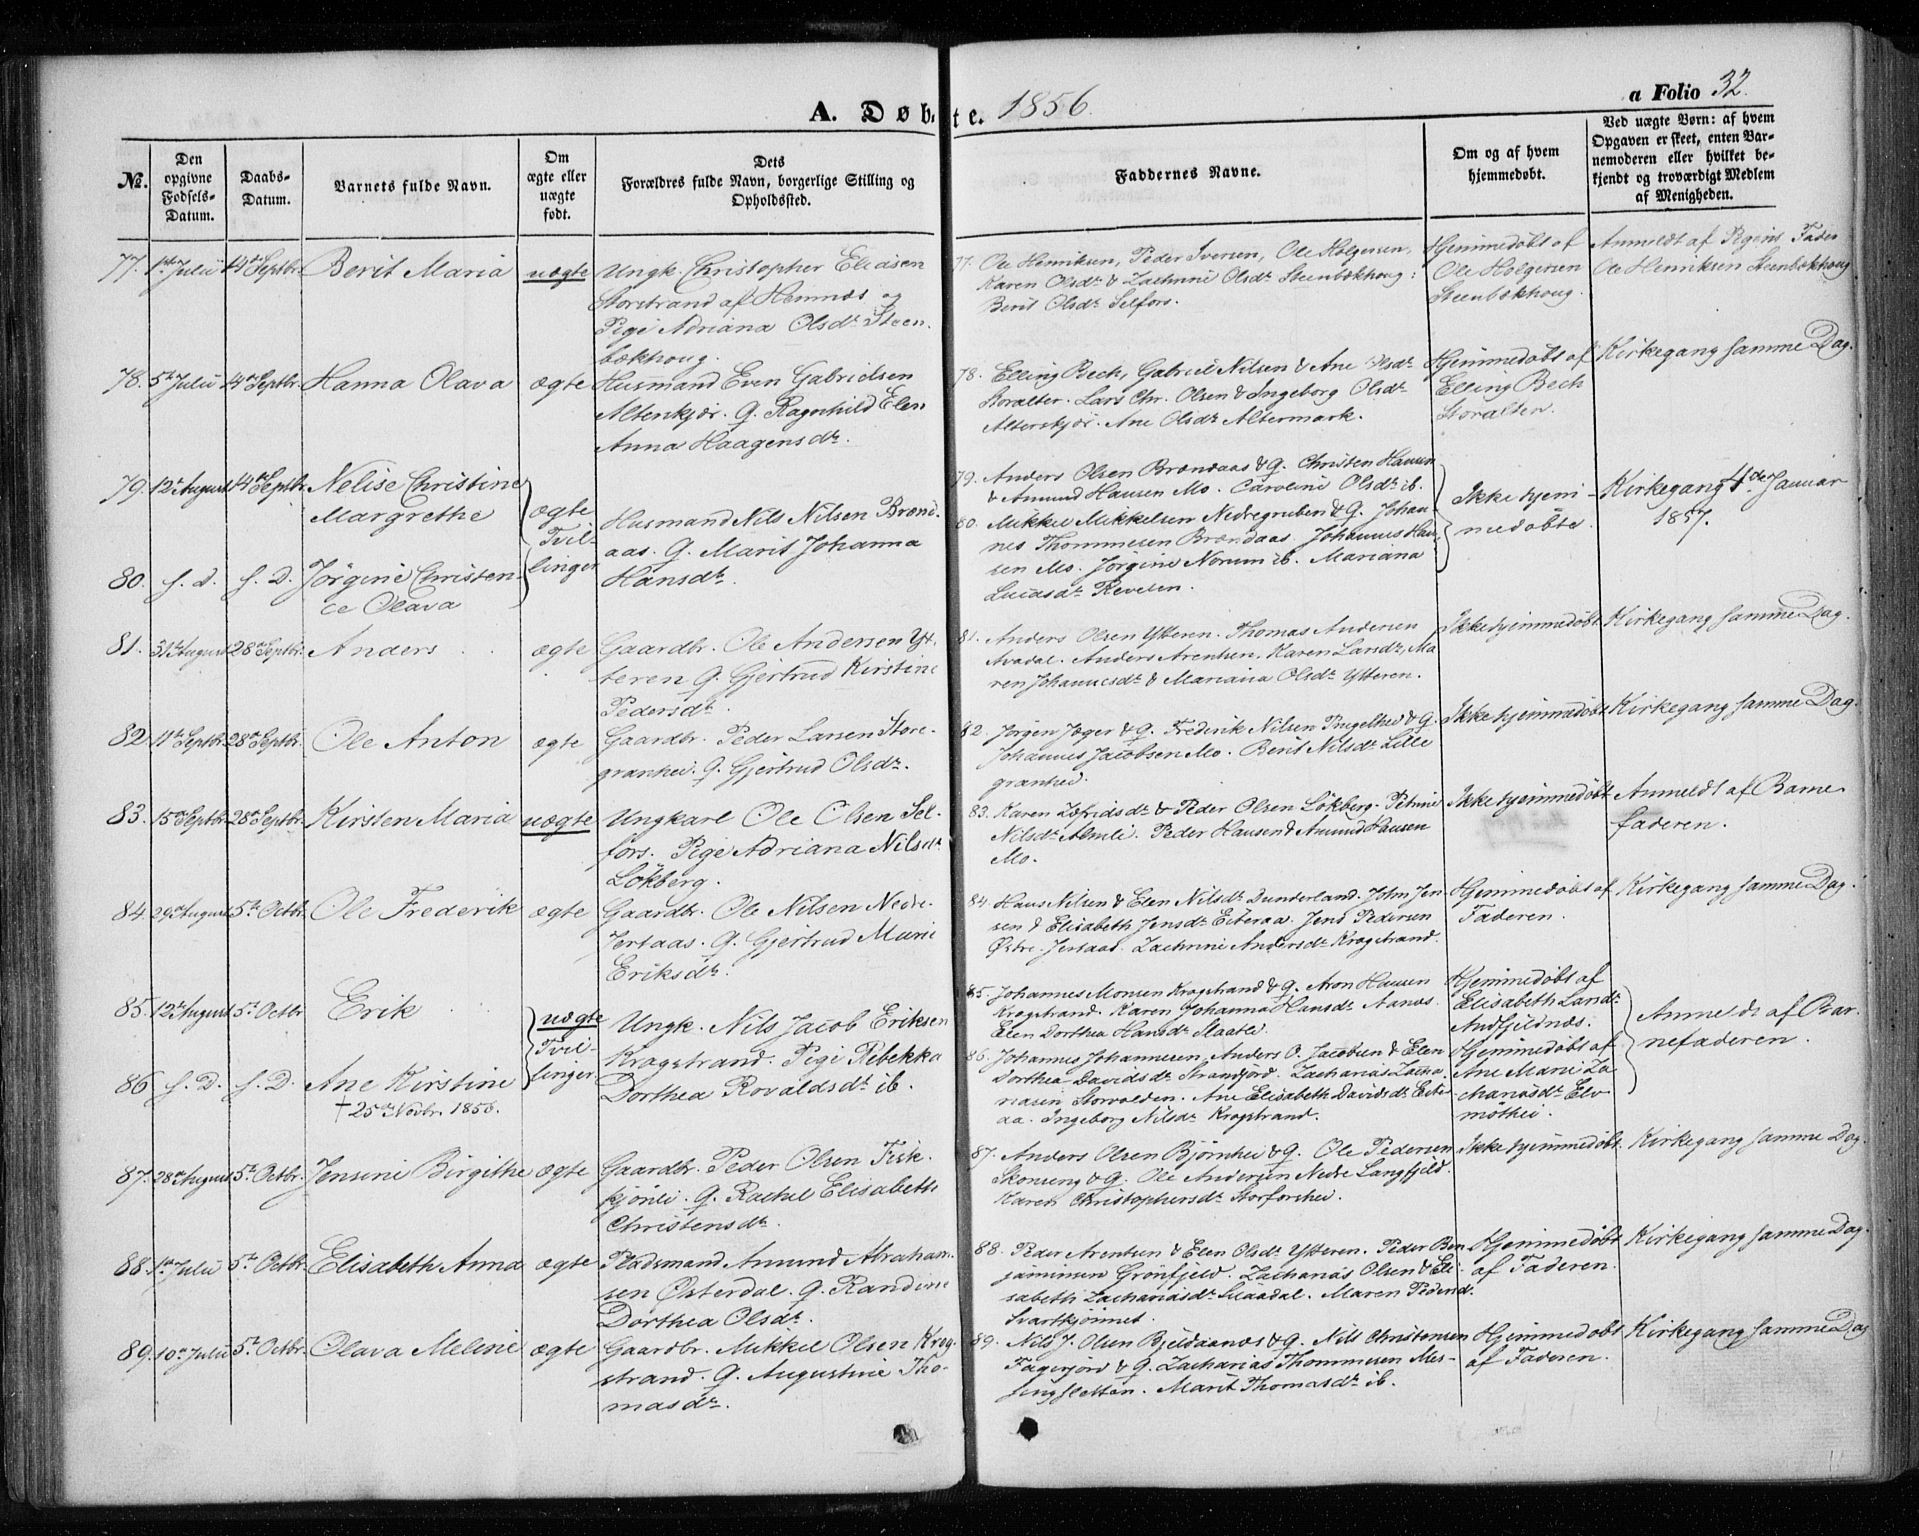 A. Døbte. 1856
a Folio 32.
No.
Den opgivne Fødsels-Datum.
Daabs-Datum.
Barnets fulde Navn.
Om ægte eller uægte født.
Dets Forældres fulde Navn, borgerlige Stilling og Opholdssted.
Faddernes Navne.
Om og af hvem hjemmedøbt.
Ved uægte Børn: af hvem Opgaven er skeet, enten Barnemoderen eller hvilket bekjendt og troværdigt Medlem af Menigheden.
77. 1ste Julii 14de Septbr. Berit Maria uægte Ungk. Christopher Eliasen
Storstrand af Hemnæs og
Pige Adriana Olsdr. Steen-
bækhoug.
77. Ole Henriksen, Peder Iversen, Ole Holgersen,
Karen Olsdr. & Zachrine Olsdr. Steenbækhoug.
Berit Olsdr. Selfors.
Hjemmedøbt af
Ole Holgersen
Steenbækhoug.
Anmeldt af Pigens Fader
Ole Henriksen Steenbækhoug
78. 5te Julii 14de Septbr. Hanna Olava ægte Husmand Even Gabrielsen
Altenkjør. Q. Ragnhild Elen
Anna Haagensdr.
78. Elling Bech, Gabriel Nilsen & Ane Olsdr.
Storalter. Lars Chr. Olsen & Ingeborg Olsdr.
Alterskjør. Ane Olsdr. Altermark.
Hjemmedøbt af
Elling Bech
Storalten.
Kirkegang samme Dag.
79. 12te August 14de Septbr. Nelise Christine
Margrethe
80. s. d. s. D. Jørgine Christen-
ce Olava
ægte
Tvil-
linger
Husmand Nils Nilsen Brend-
aas. Q. Marit Johanna
Hansdr.
79. Anders Olsen Brændaas & Q. Christen Hansen
& Amund Hansen Mo. Caroline Olsdr. ib.
80. Mikkel Mikkelsen Nedregruben & Q. Johan-
nes Thommesen Brændaas. Johannes Han-
sen Mo. Jørgine Norum ib. Mariana
Lucasdr. Revelen.
Ikke hjem-
medøbte.
Kirkegang 4de Januar
1857.
81. 31te August 28de Septbr. Anders ægte Gaardbr. Ole Andersen Yt-
teren Q. Gjertrud Kirstine
Pedersdr.
81. Anders Olsen Ytteren. Thomas Andersen
Avadal. Anders Arentsen, Karen Larsdr., Ma-
ren Johannesdr. & Mariana Olsdr. Ytteren.
Ikke hjemmedøbt Kirkegang samme Dag.
82. 11te Septbr. 28de Septbr. Ole Anton ægte Gaardbr. Peder Larsen Store-
granhei. Q. Gjertrud Olsdr.
82. Jørgen Jæger & Q. Frederik Nilsen & Q.
Johannes Jacobsen Mo. Berit Nilsdr. Lille
granhei.
Ikke hjemmedøbt Kirkegang samme Dag
83. 15de Septbr. 28de Septbr. Kirsten Maria uægte Ungkarl Ole Olsen Sel-
fors. Pige Adriana Nilsdr.
Løkberg.
83. Karen Zefridsdr. & Peder Olsen Løkberg. Petrine
Nilsdr. Almli. Peder Hansen & Amund Hansen
Mo.
Ikke hjemmedøbt Anmeldt af Barne-
faderen.
84. 29de August 5te Octbr. Ole Frederik ægte Gaardbr. Ole Nilsen Nedre-
Jertaas. Q. Gjertrud Marie
Eriksdr.
84. Hans Nilsen & Elen Nilsdr. Dunderland. John Jen-
sen & Elisabeth Jensdr. Eiteraa. Jens Pedersen
Østre-Jertaas. Zachrine Andersdr. Krogstrand.
Hjemmedøbt af
Faderen.
Kirkegang samme Dag.
85. 12te August 5te Octbr. Erik
86. s. D. s. D. Ane Kirstine
† 25de Novbr. 1856.
uægte
Tvil-
linger
Ungk. Nils Jacob Eriksen
Krogstrand. Pige Rebekka
Dorthea Rovaldsdr. ib.
85. Johannes Monsen Krogstrand & Q. Aron Hansen
Krogstrand. Karen Johanna Hansdr. Aanæs.
Elen Dorthea Hansdr. Slaatli.
86. Johannes Johannesen, Anders O. Jacobsen & Elen
Dorthea Davidsdr. Strandjord. Zacharias Zacha-
riasen Storvolden. Ane Elisabeth Davidsdr. Eiter-
aa. Ingeborg Nilsdr. Krogstrand.
Hjemmedøbt af
Elisabeth Larsdr.
Andfjeldnæs.
Hjemmedøbt af
Ane Marie Za-
chariasdr. Elv-
møthei.
Anmeldt af Bar-
nefaderen.
87. 28de August 5te Octbr. Jensine Birgithe ægte Gaardbr. Peder Olsen Fisk-
kjønli. Q. Rachel Elisabeth
Christensdr.
87. Anders Olsen Bjørnhei & Q. Ole Pedersen
Skonseng & Q. Ole Andersen Nedre Langfjeld.
Karen Christophersdr. Storforshei.
Ikke hjemmedøbt Kirkegang samme Dag.
88. 1ste Julii 5te Octbr. Elisabeth Anna ægte Pladsmand Amund Abraham-
sen Østerdal. Q. Randine
Dorthea Olsdr.
88. Peder Arentsen & Elen Olsdr. Ytteren. Peder Ben-
jaminsen Grønfjeld. Zacharias Olsen & Eli-
sabeth Zachariasdr. Svaadal. Maren Pedersd.
Svarttjønnet.
Hjemmedøbt
af Faderen.
Kirkegang samme Dag.
89. 10de Julii 5te Octbr. Olava Meline ægte Gaardbr. Mikkel Olsen Krog-
strand. Q. Augustine Tho-
masdr.
89. Nils J. Olsen Bjeldaanæs & Q. Nils Christensen
Fagerjord & Q. Zacharias Thommesen Mes-
singsletten. Marit Thomasdr. ib.
Hjemmedøbt
af Faderen.
Kirkegang samme Dag